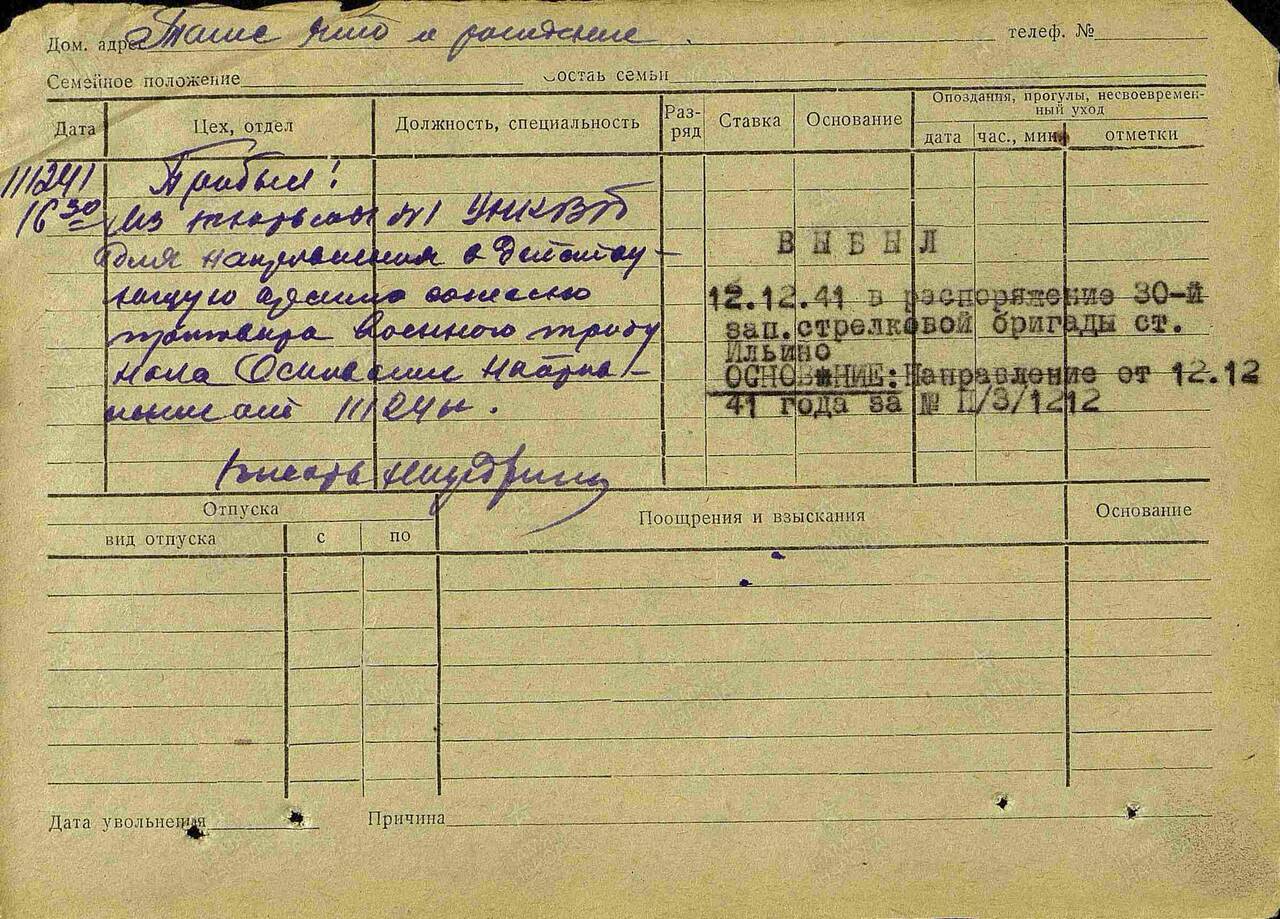 Дом. адрес Там же что и рождение. телеф. №
Семейное положение Состав семьи
Дата Цех, отдел Должность, специальность Раз-ряд Ставка Основание Опоздания, прогулы, несвоевремен-ный уход
дата час., мин. отметки
11/1241 Прибыл!
16 30 Из тюрьмы №1 УНКВД
для направления в действу-
ющую армию согласно
приговора военного трибу
нала Основание направ-
ление от 11/1241г.
Писарь
В Ы Б Ы Л
12.12.41 в распоряжение 30-й
зап.стрелковой бригады ст.
Ильино
ОСНОВАНИЕ: Направление от 12.12
41 года за № П/3/1212
Отпуска Поощрения и взыскания Основание
вид отпуска с по
Дата увольнения Причина